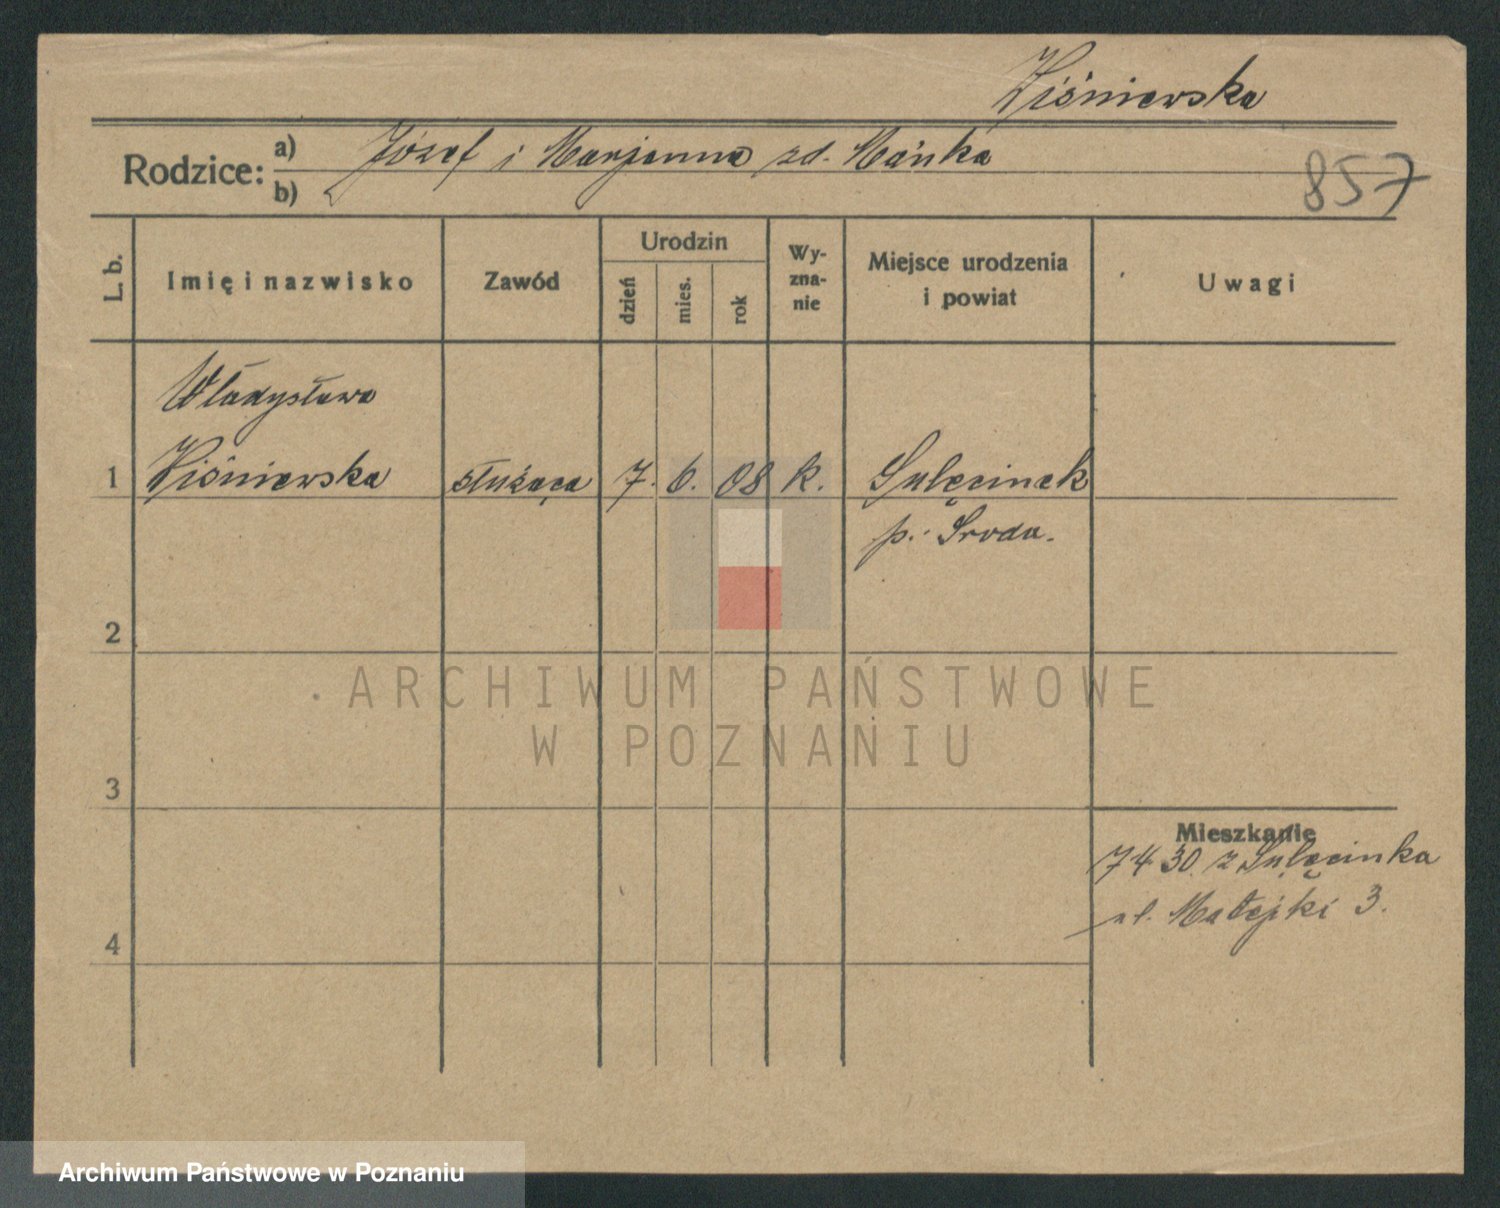 Wiśniewska
Rodzice: a) Józef i Marjanna zd. Mańka
b)
857
L. b.
Imię i nazwisko
Zawód
Urodzin
dzień
mies.
rok
Wy-
zna-
nie
Miejsce urodzenia
i powiat
Uwagi
Władysława
1 Wiśniewska służąca 7. 6. 08 k. Sulęcinek
p. Środa.
2
3
4
Mieszkanie
7 4 30 z Sulęcinka
ul. Matejki 3.
ARCHIWUM PAŃSTWOWE
W POZNANIU
Archiwum Państwowe w Poznaniu